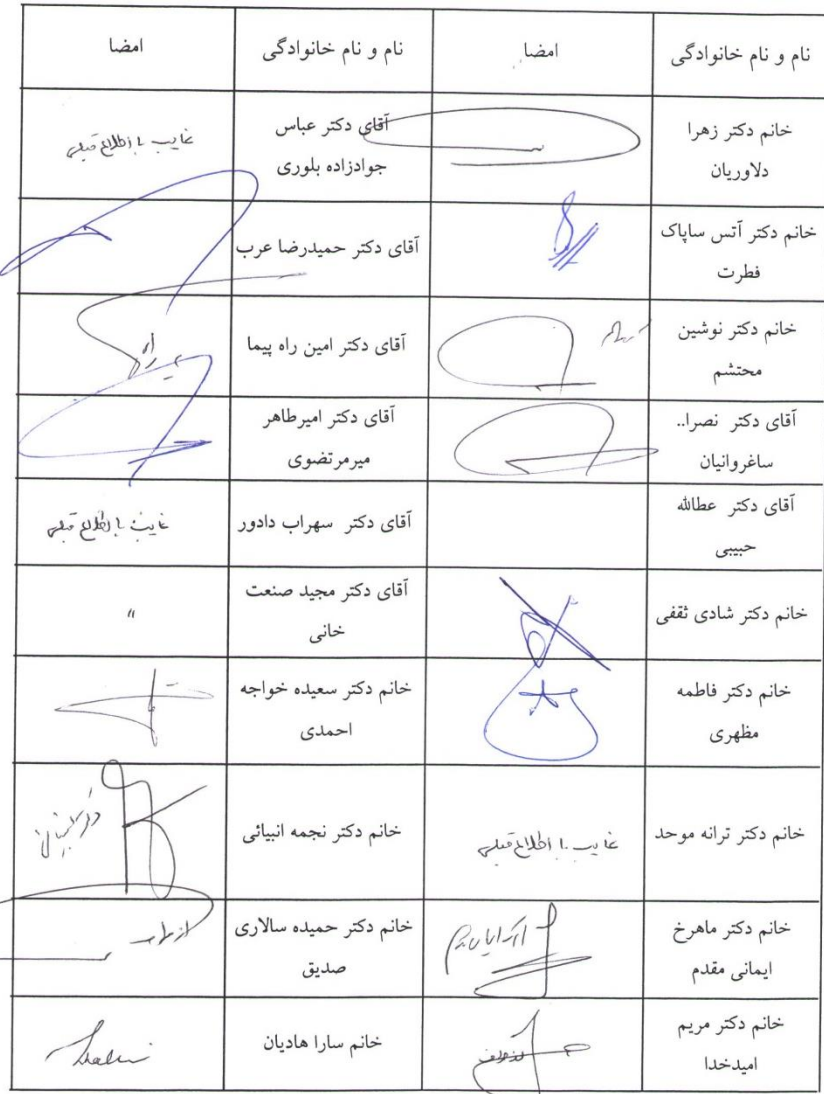 نام و نام خانوادگی امضا نام و نام خانوادگی امضا
خانم دکتر زهرا
دلاوریان
آقای دکتر عباس
جوادزاده بلوری
غایب با اطلاع قبلی
خانم دکتر آتس ساپاک
فطرت
آقای دکتر حمیدرضا عرب
خانم دکتر نوشین
محتشم
آقای دکتر امین راه پیما
آقای دکتر نصرا..
ساغروانیان
آقای دکتر امیرطاهر
میرمرتضوی
آقای دکتر عطالله
حبیبی
آقای دکتر سهراب دادور
غایب با اطلاع قبلی
خانم دکتر شادی ثقفی
آقای دکتر مجید صنعت
خانی
"
خانم دکتر فاطمه
مظهری
خانم دکتر سعیده خواجه
احمدی
خانم دکتر ترانه موحد
غایب با اطلاع قبلی
خانم دکتر نجمه انبیائی
خانم دکتر ماهرخ
ایمانی مقدم
خانم دکتر حمیده سالاری
صدیق
خانم دکتر مریم
امیدخدا
خانم سارا هادیان